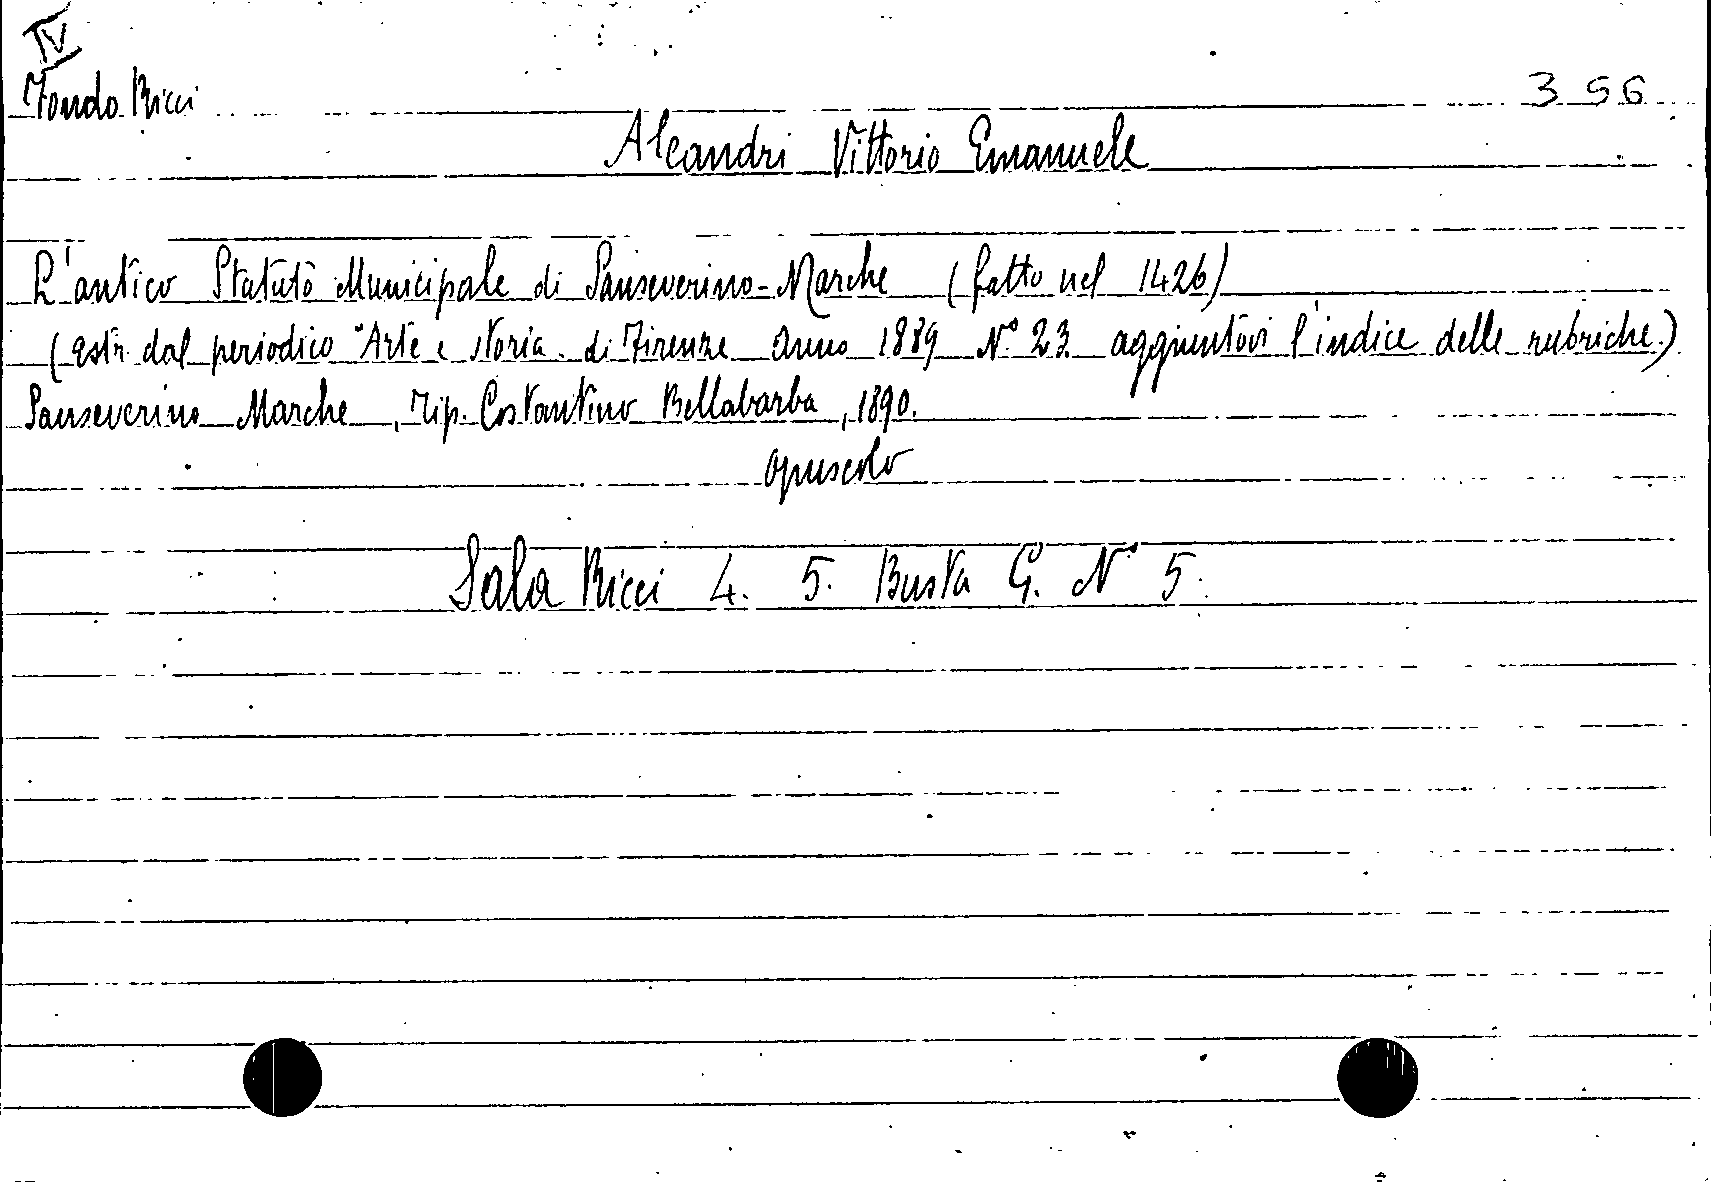 IV
Fondo Ricci
356
Aleandri Vittorio Emanuele
L'antico Statuto Municipale di Sanseverino-Marche (fatto nel 1426)
(estr. dal periodico "Arte e storia. di Firenze anno 1889 N° 23 aggiuntovi l'indice delle rubriche.)
Sanseverino Marche, Tip. Costantino Bellabarba, 1890.
opuscolo
Sala Ricci 4. 5. Busta G. N° 5.